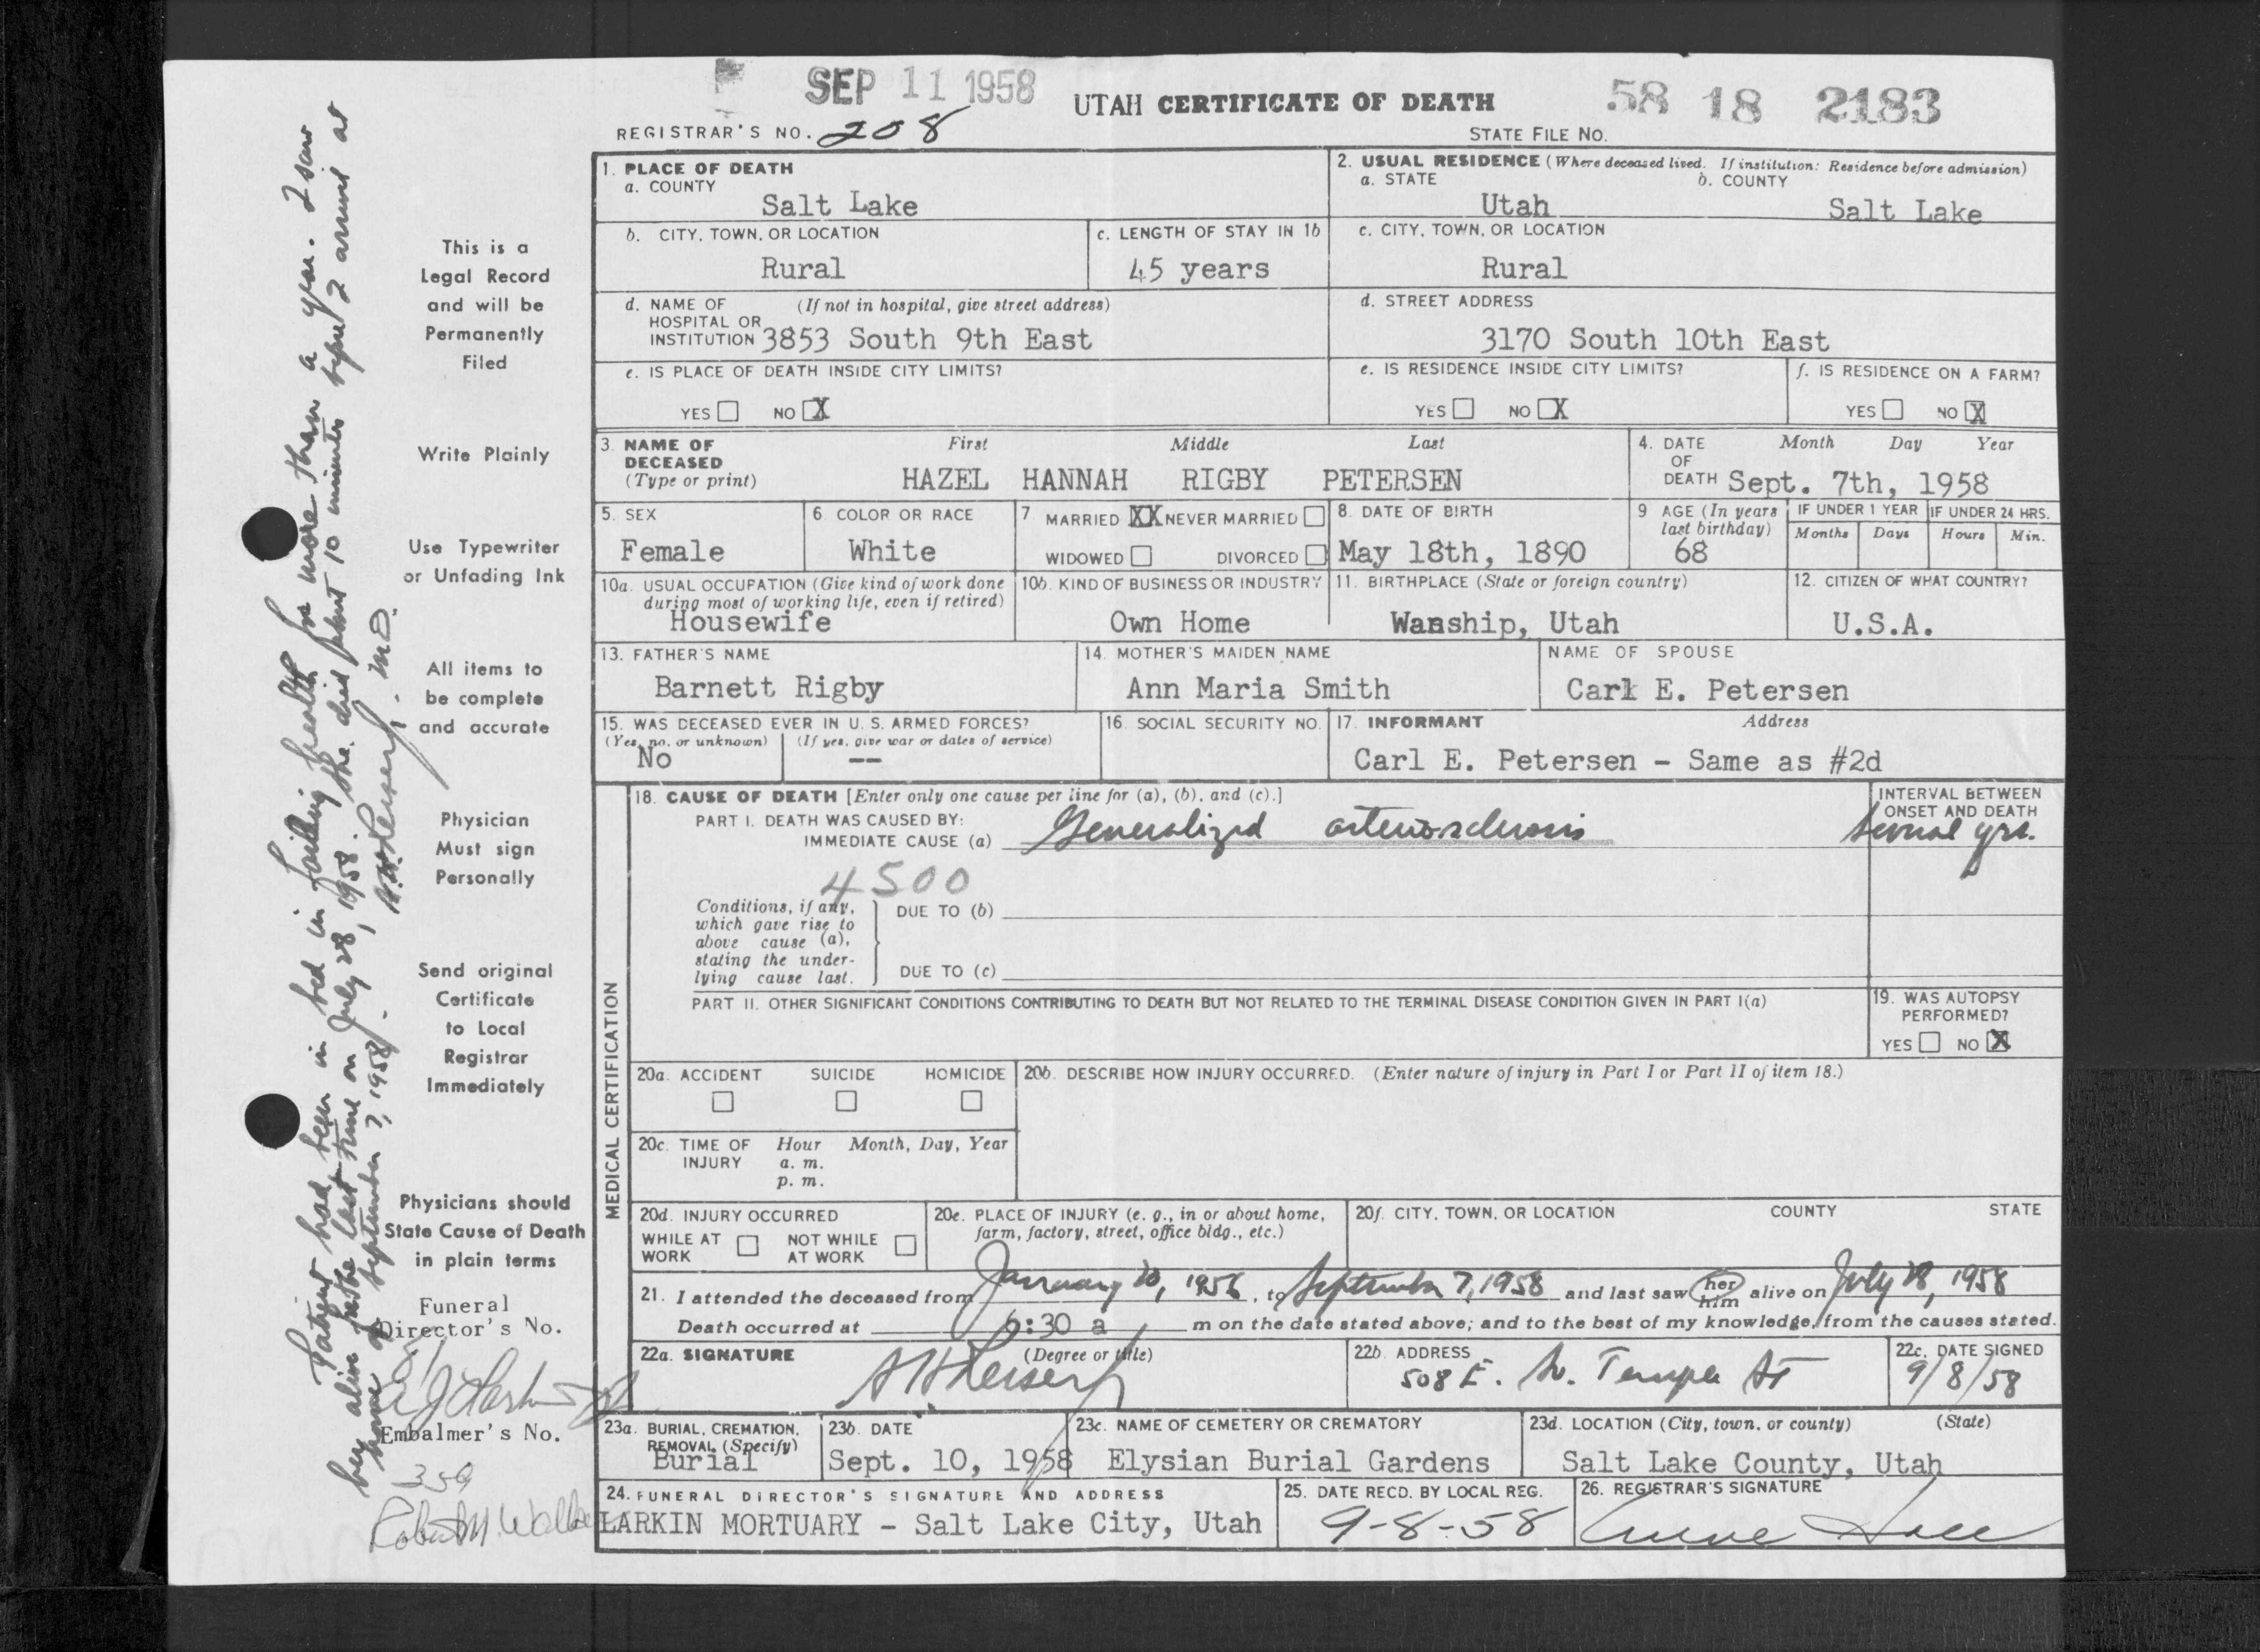 SEP 11 1958
UTAH CERTIFICATE OF DEATH
58 18 2183
REGISTRAR'S NO. 208
STATE FILE NO.
1. PLACE OF DEATH
a. COUNTY
Salt Lake
2. USUAL RESIDENCE (Where deceased lived. If institution: Residence before admission)
a. STATE b. COUNTY
Utah Salt Lake
b. CITY, TOWN, OR LOCATION
Rural
c. LENGTH OF STAY IN 1b
45 years
c. CITY, TOWN, OR LOCATION
Rural
d. NAME OF (If not in hospital, give street address)
HOSPITAL OR
INSTITUTION 3853 South 9th East
d. STREET ADDRESS
3170 South 10th East
e. IS PLACE OF DEATH INSIDE CITY LIMITS?
YES NO X
e. IS RESIDENCE INSIDE CITY LIMITS?
YES NO X
f. IS RESIDENCE ON A FARM?
YES NO X
3. NAME OF First Middle Last
DECEASED
(Type or print) HAZEL HANNAH RIGBY PETERSEN
4. DATE Month Day Year
OF
DEATH Sept. 7th, 1958
5. SEX
Female
6 COLOR OR RACE
White
7 MARRIED XX NEVER MARRIED
WIDOWED DIVORCED
8. DATE OF BIRTH
May 18th, 1890
9 AGE (In years
last birthday)
68
IF UNDER 1 YEAR
Months Days
IF UNDER 24 HRS.
Hours Min.
10a. USUAL OCCUPATION (Give kind of work done
during most of working life, even if retired)
Housewife
10b. KIND OF BUSINESS OR INDUSTRY
Own Home
11. BIRTHPLACE (State or foreign country)
Wanship, Utah
12. CITIZEN OF WHAT COUNTRY?
U.S.A.
13. FATHER'S NAME
Barnett Rigby
14. MOTHER'S MAIDEN NAME
Ann Maria Smith
NAME OF SPOUSE
Carl E. Petersen
15. WAS DECEASED EVER IN U. S. ARMED FORCES?
(Yes, no, or unknown) (If yes, give war or dates of service)
No --
16. SOCIAL SECURITY NO.
17. INFORMANT Address
Carl E. Petersen - Same as #2d
MEDICAL CERTIFICATION
18. CAUSE OF DEATH [Enter only one cause per line for (a), (b), and (c).]
PART I. DEATH WAS CAUSED BY:
IMMEDIATE CAUSE (a) Generalized arteriosclerosis
INTERVAL BETWEEN
ONSET AND DEATH
several yrs.
4500
Conditions, if any,
which gave rise to
above cause (a),
stating the under-
lying cause last.
DUE TO (b)
DUE TO (c)
PART II. OTHER SIGNIFICANT CONDITIONS CONTRIBUTING TO DEATH BUT NOT RELATED TO THE TERMINAL DISEASE CONDITION GIVEN IN PART I(a)
19. WAS AUTOPSY
PERFORMED?
YES NO X
20a. ACCIDENT SUICIDE HOMICIDE
20b. DESCRIBE HOW INJURY OCCURRED. (Enter nature of injury in Part I or Part II of item 18.)
20c. TIME OF Hour Month, Day, Year
INJURY a. m.
p. m.
20d. INJURY OCCURRED
WHILE AT NOT WHILE
WORK AT WORK
20e. PLACE OF INJURY (e. g., in or about home,
farm, factory, street, office bldg., etc.)
20f. CITY, TOWN, OR LOCATION COUNTY STATE
21. I attended the deceased from January 20, 1956, to September 7, 1958 and last saw her him alive on July 28, 1958
Death occurred at 6:30 a m on the date stated above; and to the best of my knowledge, from the causes stated.
22a. SIGNATURE (Degree or title)
22b. ADDRESS
508 E. So. Temple St
22c. DATE SIGNED
9/8/58
23a. BURIAL, CREMATION,
REMOVAL (Specify)
Burial
23b. DATE
Sept. 10, 1958
23c. NAME OF CEMETERY OR CREMATORY
Elysian Burial Gardens
23d. LOCATION (City, town, or county) (State)
Salt Lake County, Utah
24. FUNERAL DIRECTOR'S SIGNATURE AND ADDRESS
LARKIN MORTUARY - Salt Lake City, Utah
25. DATE RECD. BY LOCAL REG.
9-8-58
26. REGISTRAR'S SIGNATURE
This is a
Legal Record
and will be
Permanently
Filed
Write Plainly
Use Typewriter
or Unfading Ink
All items to
be complete
and accurate
Physician
Must sign
Personally
Send original
Certificate
to Local
Registrar
Immediately
Physicians should
State Cause of Death
in plain terms
Funeral
Director's No.
Embalmer's No.
359
Patient had been in bed in failing health for more than a year. I saw
her alive for the last time on July 28, 1958. She died about 10 minutes before I arrived at
home September 7, 1958.
M.D.